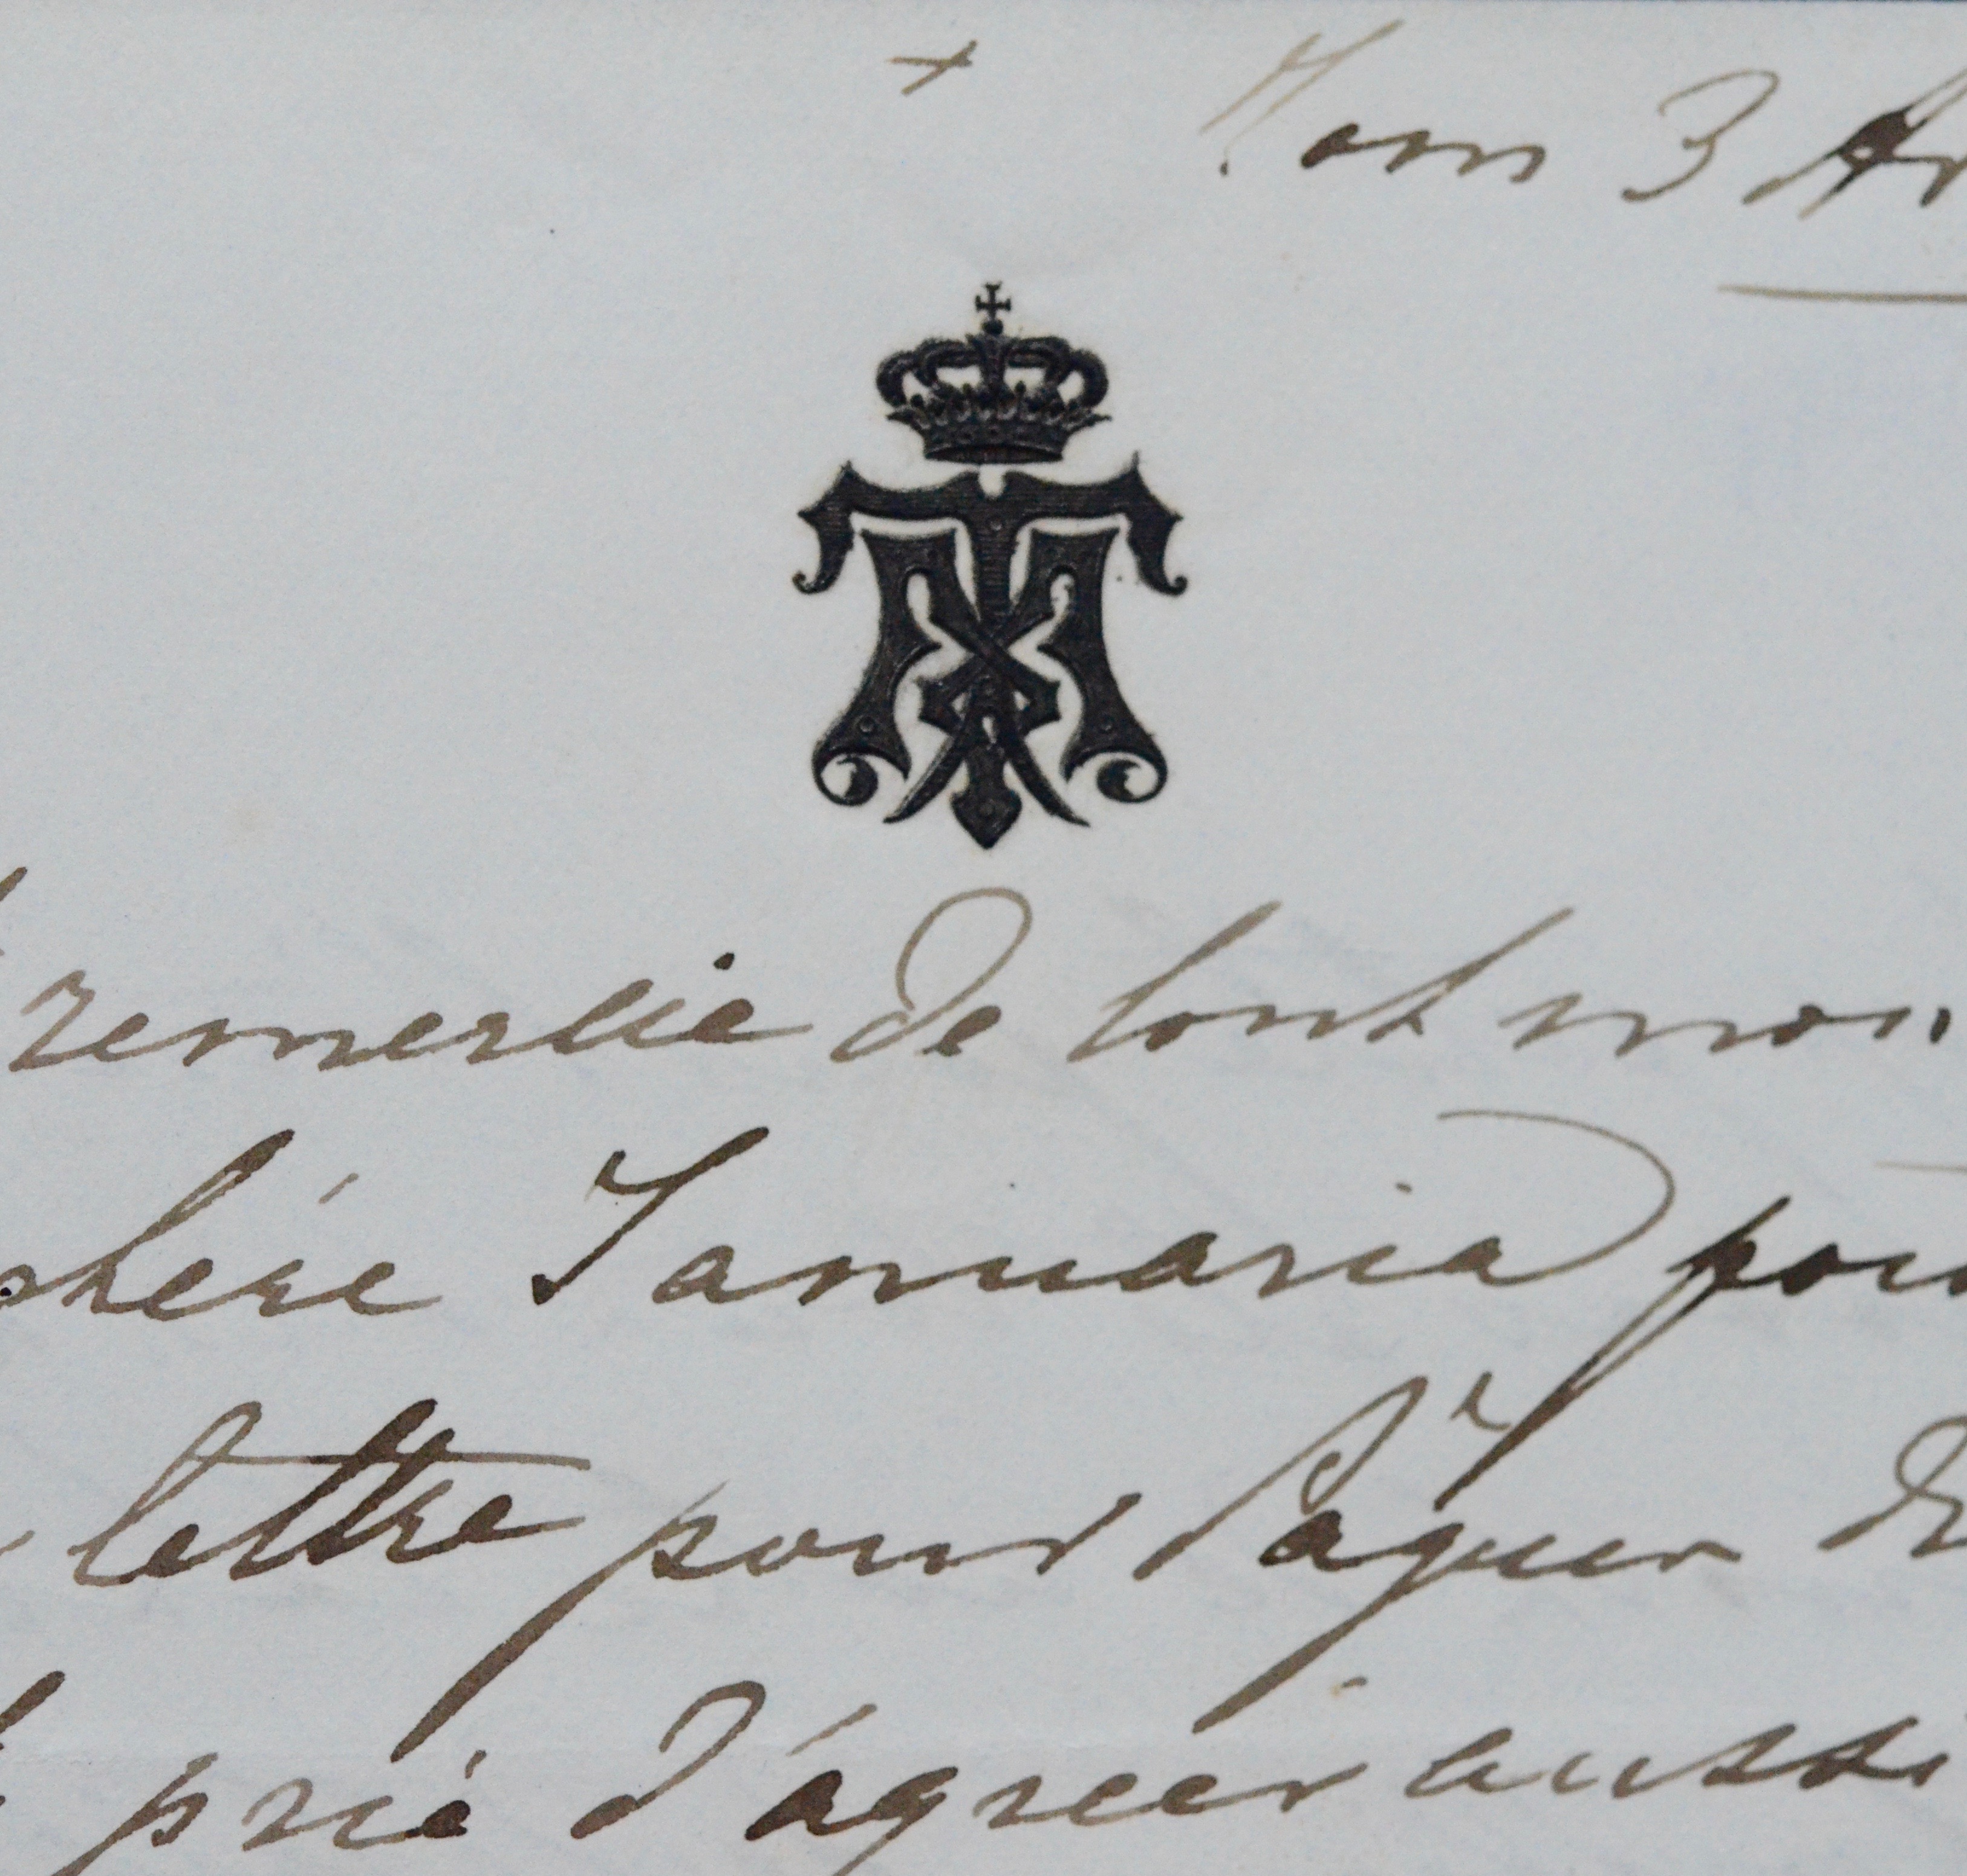 3
remercie de tout mon
chére Januaria pour
lettre pour Pâques
prie d'agréer aussi